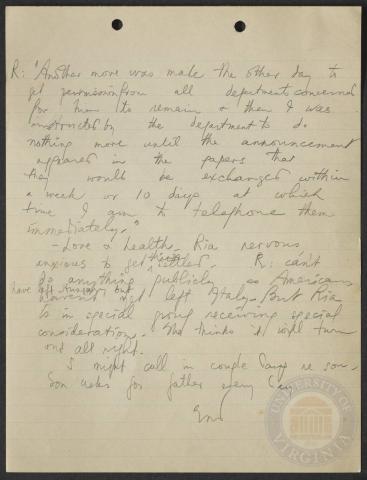 R: "Another move was made the other day to
get permission from all departments concerned
for them to remain & then I was
instructed by the department to do
nothing more until the announcement
appeared in the papers that
they would be exchanged within
a week or 10 days at which
time I am to telephone them
immediately."
- Love & health. Ria nervous
anxious to get things settled. R: can't
do anything publicly as Americans
have off but
haven't yet left Italy. But Ria
is in special group receiving special
consideration. She thinks it will turn
out all right.
I might call in couple days re son.
Son asks for father every day.
End
UNIVERSITY OF
VIRGINIA